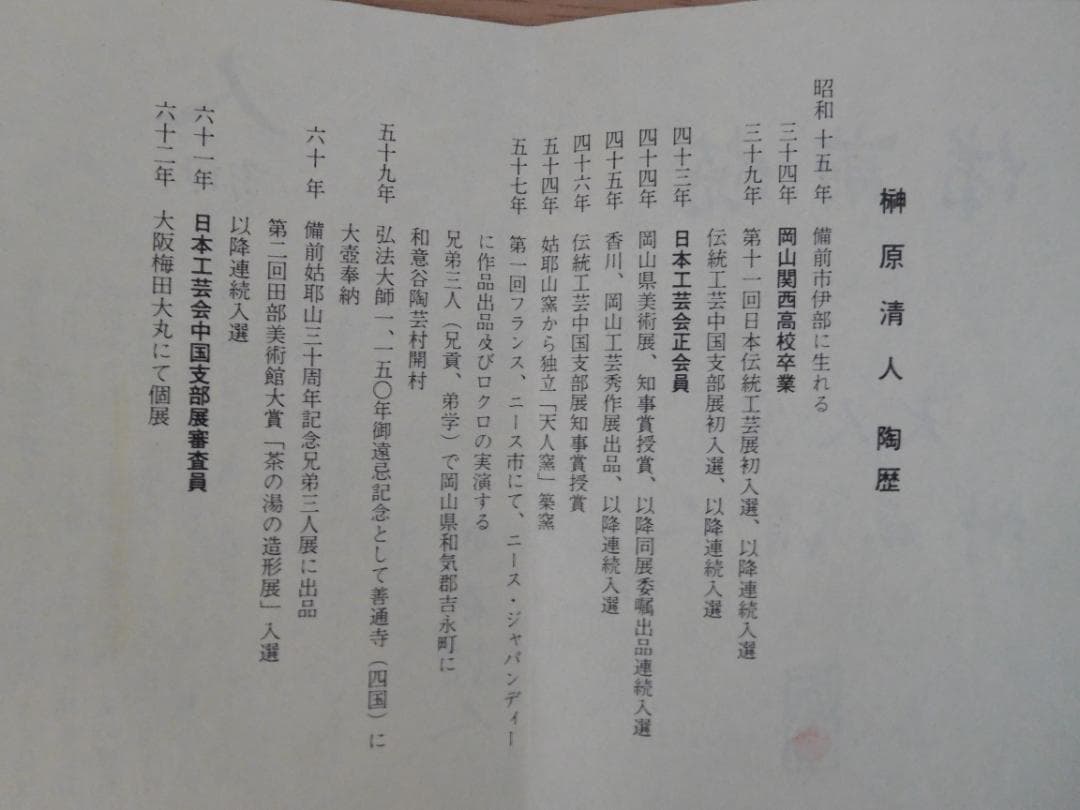 榊原清人 陶歴
昭和十五年 備前市伊部に生れる
三十四年 岡山関西高校卒業
三十九年 第十一回日本伝統工芸展初入選、以降連続入選
伝統工芸中国支部展初入選、以降連続入選
四十三年 日本工芸会正会員
四十四年 岡山県美術展、知事賞授賞、以降同展委嘱出品連続入選
四十五年 香川、岡山工芸秀作展出品、以降連続入選
四十六年 伝統工芸中国支部展知事賞授賞
五十四年 姑耶山窯から独立「天人窯」築窯
五十七年 第一回フランス、ニース市にて、ニース・ジャパンディー
に作品出品及びロクロの実演する
兄弟三人(兄貢、弟学)で岡山県和気郡吉永町に
和意谷陶芸村開村
五十九年 弘法大師一、一五〇年御遠忌記念として善通寺(四国)に
大壺奉納
六十年 備前姑耶山三十周年記念兄弟三人展に出品
第二回田部美術館大賞「茶の湯の造形展」入選
以降連続入選
六十一年 日本工芸会中国支部展審査員
六十二年 大阪梅田大丸にて個展